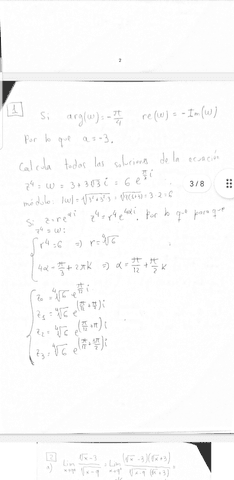 2
1
Si arg(w) = -π/4 re(w) = -Im(w)
Por lo que a = -3.
Calcula todas las soluciones de la ecuación
z⁴ = w = 3 + 3√3 i = 6 e^(π/3 i)
3/8
módulo: |w| =
Si z = r e^(αi) z⁴ = r⁴ e^(4αi), Por lo que para que
z⁴ = w:
r⁴ = 6 ⇒ r = ⁴√6
4α = π/3 + 2πk ⇒ α = π/12 + π/2 k
z₀ = ⁴√6 e^(π/12 i)
z₁ = ⁴√6 e^((π/12 + π/2) i)
z₂ = ⁴√6 e^((π/12 + π) i)
z₃ = ⁴√6 e^((π/12 + 3π/2) i)
2
a) Lim